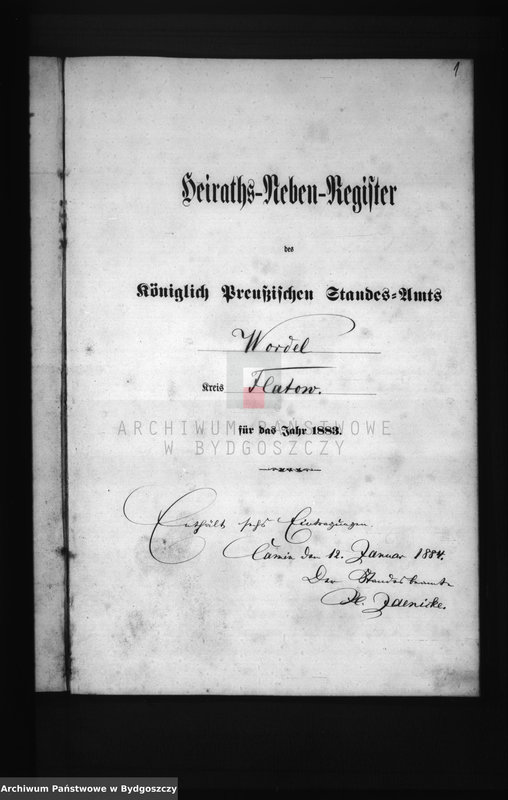 1
Heiraths-Neben-Register
des
Königlich Preußischen Standes-Amts
Wordel
Kreis Flatow.
ARCHIWUM PAŃSTWOWE
W BYDGOSZCZY
für das Jahr 1883.
Enthält sechs Eintragungen.
Camin den 12. Januar 1884.
Der Standesbeamte
Jaenicke.
Archiwum Państwowe w Bydgoszczy